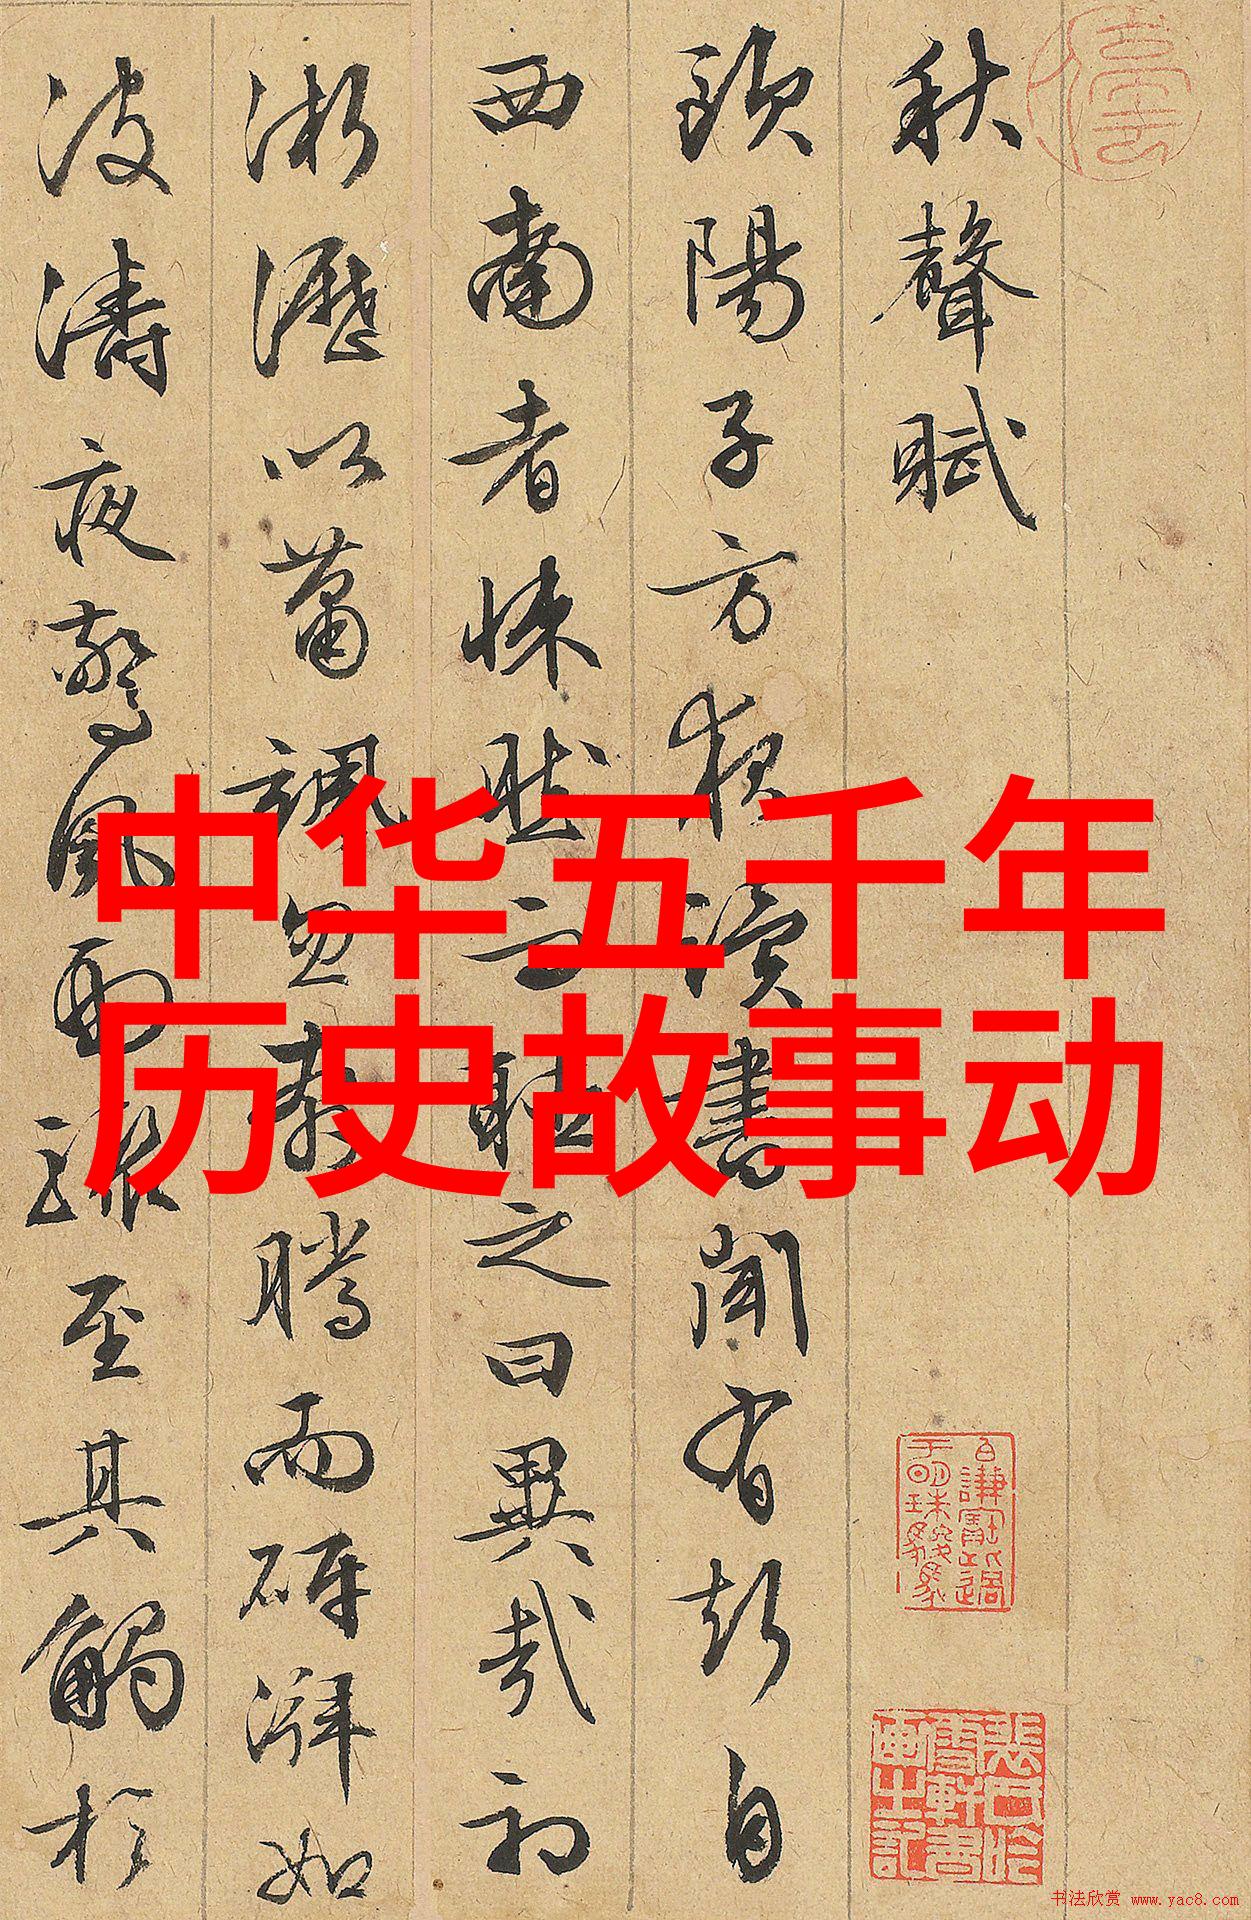 秋聲賦
歐陽子方夜讀書聞有聲自
西南者悚然而聽之曰異哉初
淅瀝以蕭颯忽奔騰而砰湃如
波濤夜驚風雨驟至其觸於
中华五千年
历史故事动
书法欣赏 www.yac8.com